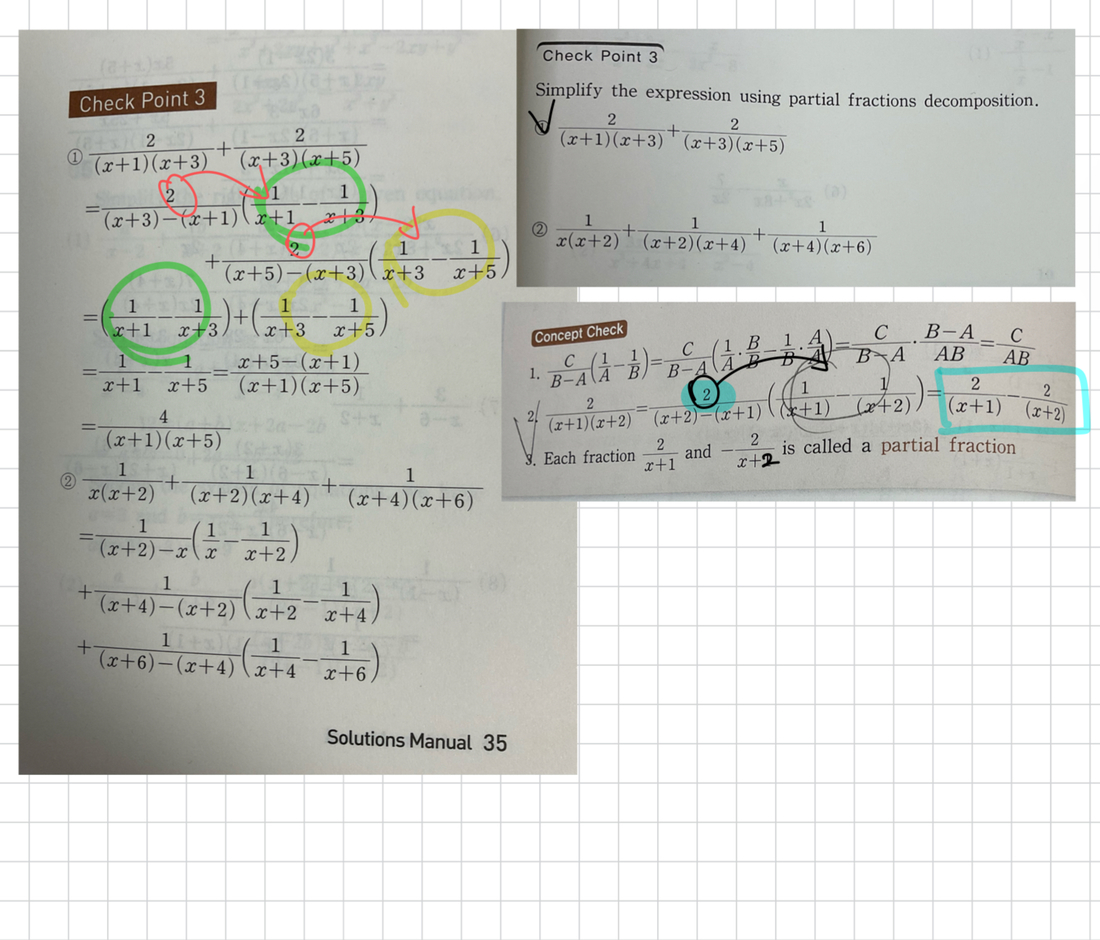 Check Point 3
① 2/((x+1)(x+3)) + 2/((x+3)(x+5))
= 2/((x+3)−(x+1)) (1/(x+1) − 1/(x+3))
+ 2/((x+5)−(x+3)) (1/(x+3) − 1/(x+5))
= (1/(x+1) 1/(x+3)) + (1/(x+3) − 1/(x+5))
= 1/(x+1) 1/(x+5) = (x+5−(x+1))/((x+1)(x+5))
= 4/((x+1)(x+5))
② 1/(x(x+2)) + 1/((x+2)(x+4)) + 1/((x+4)(x+6))
= 1/((x+2)−x) (1/x − 1/(x+2))
+ 1/((x+4)−(x+2)) (1/(x+2) − 1/(x+4))
+ 1/((x+6)−(x+4)) (1/(x+4) − 1/(x+6))
Solutions Manual 35
Check Point 3
Simplify the expression using partial fractions decomposition.
① 2/((x+1)(x+3)) + 2/((x+3)(x+5))
② 1/(x(x+2)) + 1/((x+2)(x+4)) + 1/((x+4)(x+6))
Concept Check
1. C/(B−A) (1/A − 1/B) = C/(B−A) (1/A · B/B − 1/B · A/A) = C/(B−A) · (B−A)/(AB) = C/(AB)
2. 2/((x+1)(x+2)) = 2/((x+2)−(x+1)) (1/(x+1) − 1/(x+2)) = 2/(x+1) − 2/(x+2)
3. Each fraction 2/(x+1) and −2/(x+2) is called a partial fraction